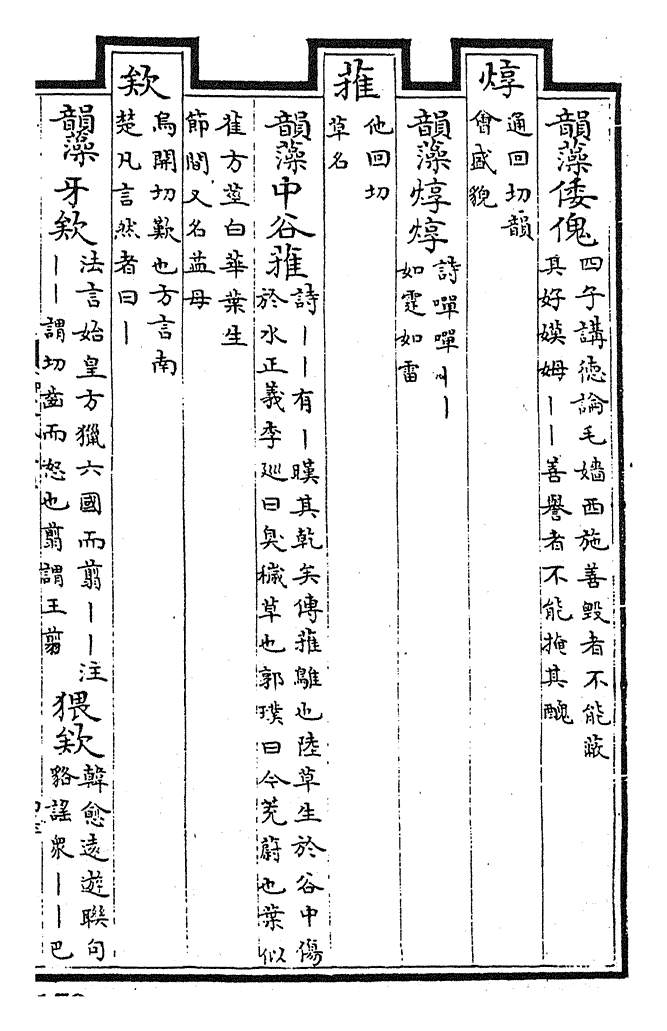 韻藻倭傀
四子講德論毛嬙西施善毀者不能蔽
其好嫫姆｜｜善譽者不能掩其醜
焞
通回切韻
會盛貌
韻藻焞焞
詩嘽嘽｜｜
如霆如雷
蓷
他回切
草名
韻藻中谷蓷
詩｜｜有｜暵其乾矣傳蓷鵻也陸草生於谷中傷
於水正義李巡曰臭穢草也郭璞曰今茺蔚也葉似
萑方莖白華葉生
節間又名益母
欸
烏開切歎也方言南
楚凡言然者曰｜
韻藻牙欸
法言始皇方獵六國而翦｜｜注
｜｜謂切齒而怒也翦謂王翦
猥欸
韓愈遠遊聯句
貉謠衆｜｜巴